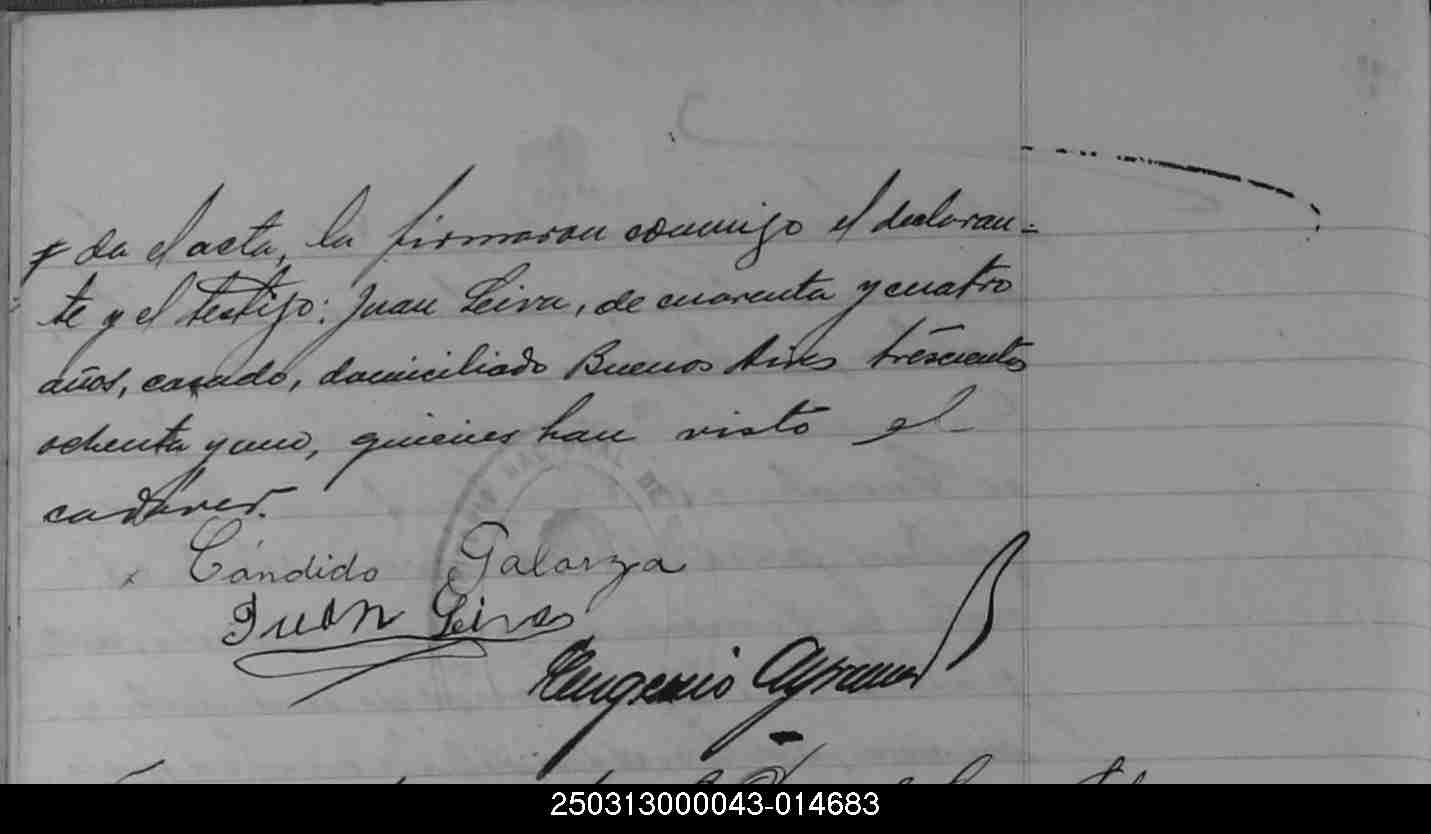 da el acta, la firmaron conmigo el declaran=
te y el testigo: Juan Leiva, de cuarenta y cuatro
años, casado, domiciliado Buenos Aires trescientos
ochenta y uno, quienes han visto el
cadáver.
Cándido Galarza
Juan Leiva
Eugenio
NACIONAL DE
250313000043-014683